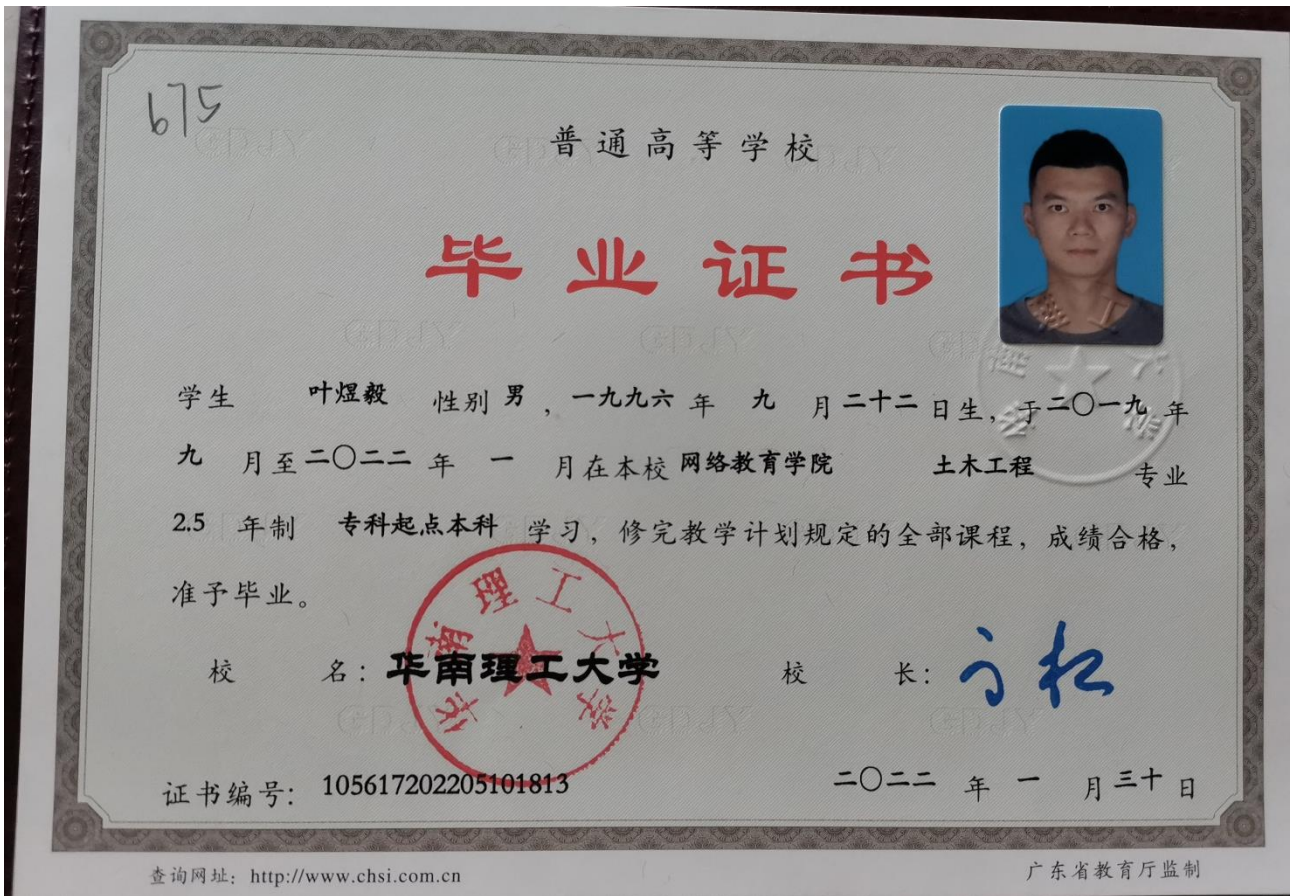 675
普通高等学校
毕业证书
学生 叶煜毅 性别 男 , 一九九六 年 九 月 二十二 日生, 于 二〇一九 年
九 月至 二〇二二 年 一 月在本校 网络教育学院 土木工程 专业
2.5 年制 专科起点本科 学习, 修完教学计划规定的全部课程, 成绩合格,
准予毕业。
校 名: 华南理工大学 校 长:
华南理工大学
证书编号: 105617202205101813 二〇二二 年 一 月 三十 日
查询网址: http://www.chsi.com.cn 广东省教育厅监制